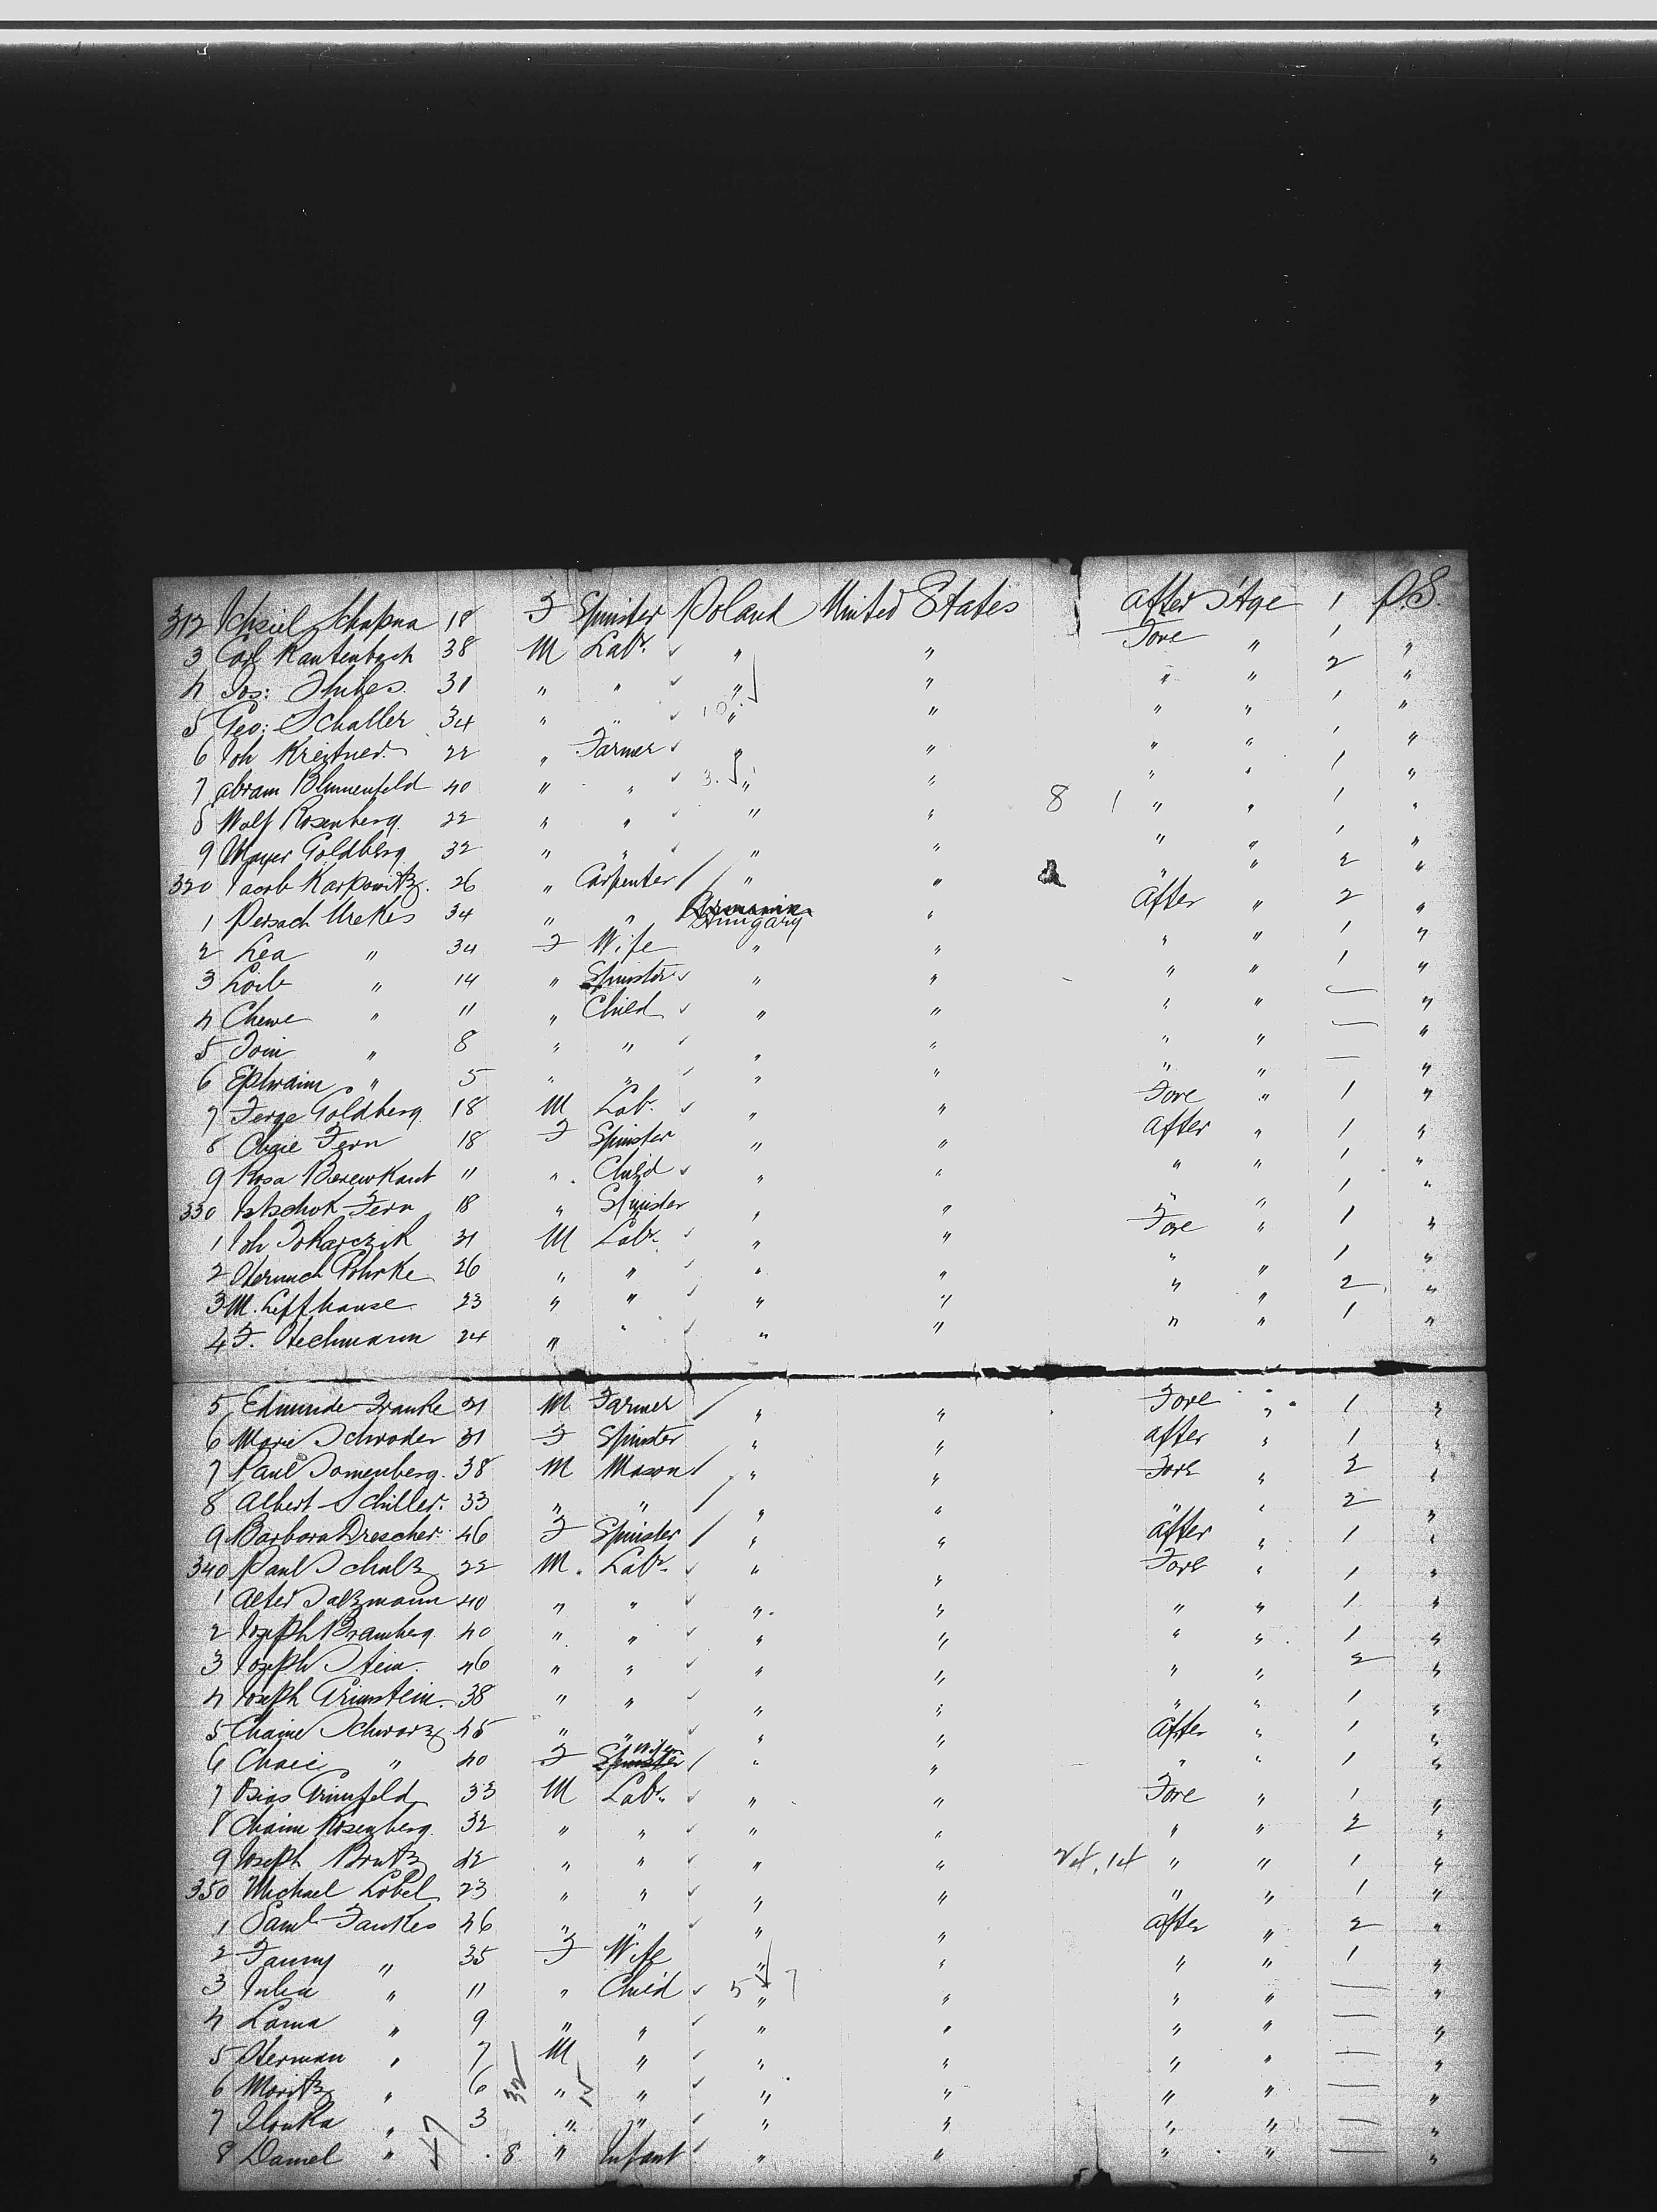 312 Ichsiel Schapna 18 F Spinster Poland United States after S'tge 1 P.S.
3 Carl Rautenbach 38 M Labr. ✓ " " Fore " 1 "
4 Jos: Thites 31 " " ✓ " " " " 2 "
5 Geo: Schaller 34 " " ✓ 10 " " " " 1 "
6 Joh Kreitner 22 " Farmer ✓ " " " " 1 "
7 Abram Blumenfeld 40 " " ✓ 3. " " " " 1 "
8 Wolf Rosenberg 22 " " ✓ " " 8 1 " " 1 "
9 Mayer Goldberg 32 " " ✓ " " " " 1 "
320 Jacob Karpowitz. 26 " Carpenter / " " " " 2 "
1 Persach Urekes 34 " " Hungary " After " 2 "
2 Lea " 34 F Wife " " " " 1 "
3 Loib " 14 " Spinster ✓ " " " " 1 "
4 Chewe " 11 " Child ✓ " " " " — "
5 Join " 8 " " ✓ " " " " — "
6 Ephraim " 5 " " ✓ " " " " — "
7 Ferge Goldberg 18 M Lab. ✓ " " Fore " 1 "
8 Chaie Fern 18 F Spinster " " After " 1 "
9 Rosa 11 " Child ✓ " " " " 1 "
330 Fern 18 " Spinster " " " " 1 "
1 Joh Tokarczik 31 M Labr. ✓ " " Fore " 1 "
2 Pohrke 26 " " ✓ " " " " 1 "
3 M. Leffhause 23 " " " " " " 2 "
4 F. Hechmann 24 " " ✓ " " " " 1 "
5 Edmunde Franke 21 M Farmer / " " Fore " 1 "
6 Marie Schroder 31 F Spinster " " after " 1 "
7 Paul Sonnenberg. 38 M Mason / " " Fore " 2 "
8 Albert Schiller. 33 " " / " " " " 2 "
9 Barbara Drescher 46 F Spinster / " " after " 1 "
340 Paul Schulz 22 M. Labr. ✓ " " Fore " 1 "
1 Alter Salzmann 40 " " ✓ " " " " 1 "
2 Joseph Bramberg 40 " " ✓ " " " " 1 "
3 Joseph Stein. 46 " " ✓ " " " " 2 "
4 Joseph Grunstein. 38 " " ✓ " " " " 1 "
5 Chaine Schwarz 45 " " ✓ " " After " 1 "
6 Chaie " 40 F Wife / " " " " 1 "
7 Grunfeld 33 M Labr. ✓ " " Fore " 1 "
8 Chaim Rosenberg 32 " " ✓ " " " " 2 "
9 Joseph 42 " " ✓ " " 24.14 " " 1 "
350 Michael Lobel 23 " " ✓ " " " " 1 "
1 Saml Faukes 46 " " ✓ " " after " 2 "
2 Fanny " 35 F Wife " " " " 1 "
3 Julia " 11 " Child ✓ 5 " 7 " " " — "
4 Lama " 9 " " ✓ " " " " — "
5 Herman " 7 M " ✓ " " " " — "
6 Moritz " 6 32 " 15 " ✓ " " " " — "
7 Ilonka " 3 " " ✓ " " " " — "
8 Daniel " 47 8 " Infant ✓ " " " " — "